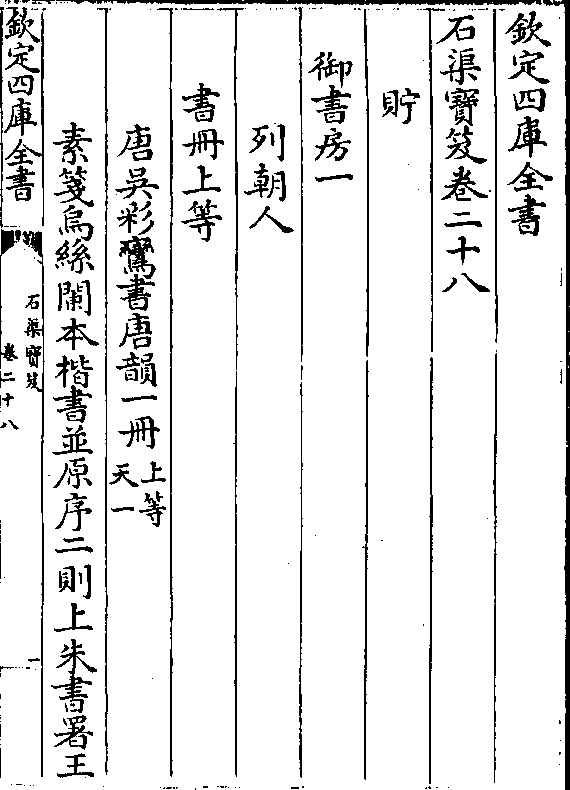 欽定四庫全書
石渠寶笈卷二十八
貯
御書房一
列朝人
書冊上等
唐吳彩鸞書唐韻一冊上等天一
素箋烏絲闌本楷書並原序二則上朱書署王
欽定四庫全書
石渠寶笈
卷二十八
一